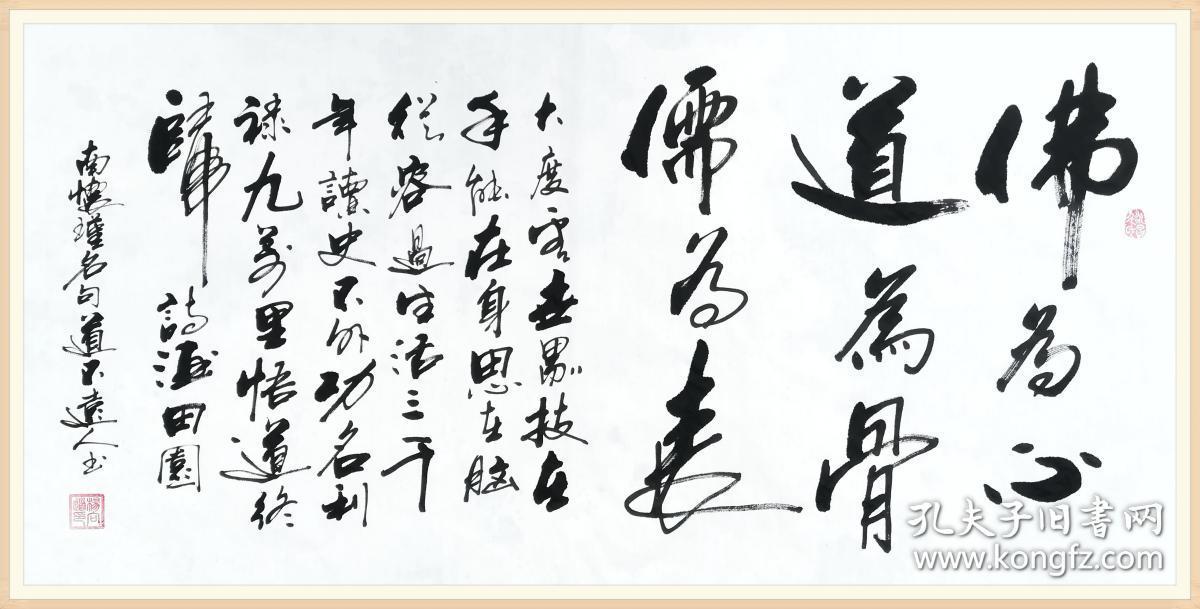 佛为心
道為骨
儒为表
大度看世界技在
手能在身思在脑
從容過生活三千
年讀史不外功名利
禄九萬里悟道终
歸詩酒田園
南懷瑾名句道不遠人书
孔夫子旧書网
www.kongfz.com